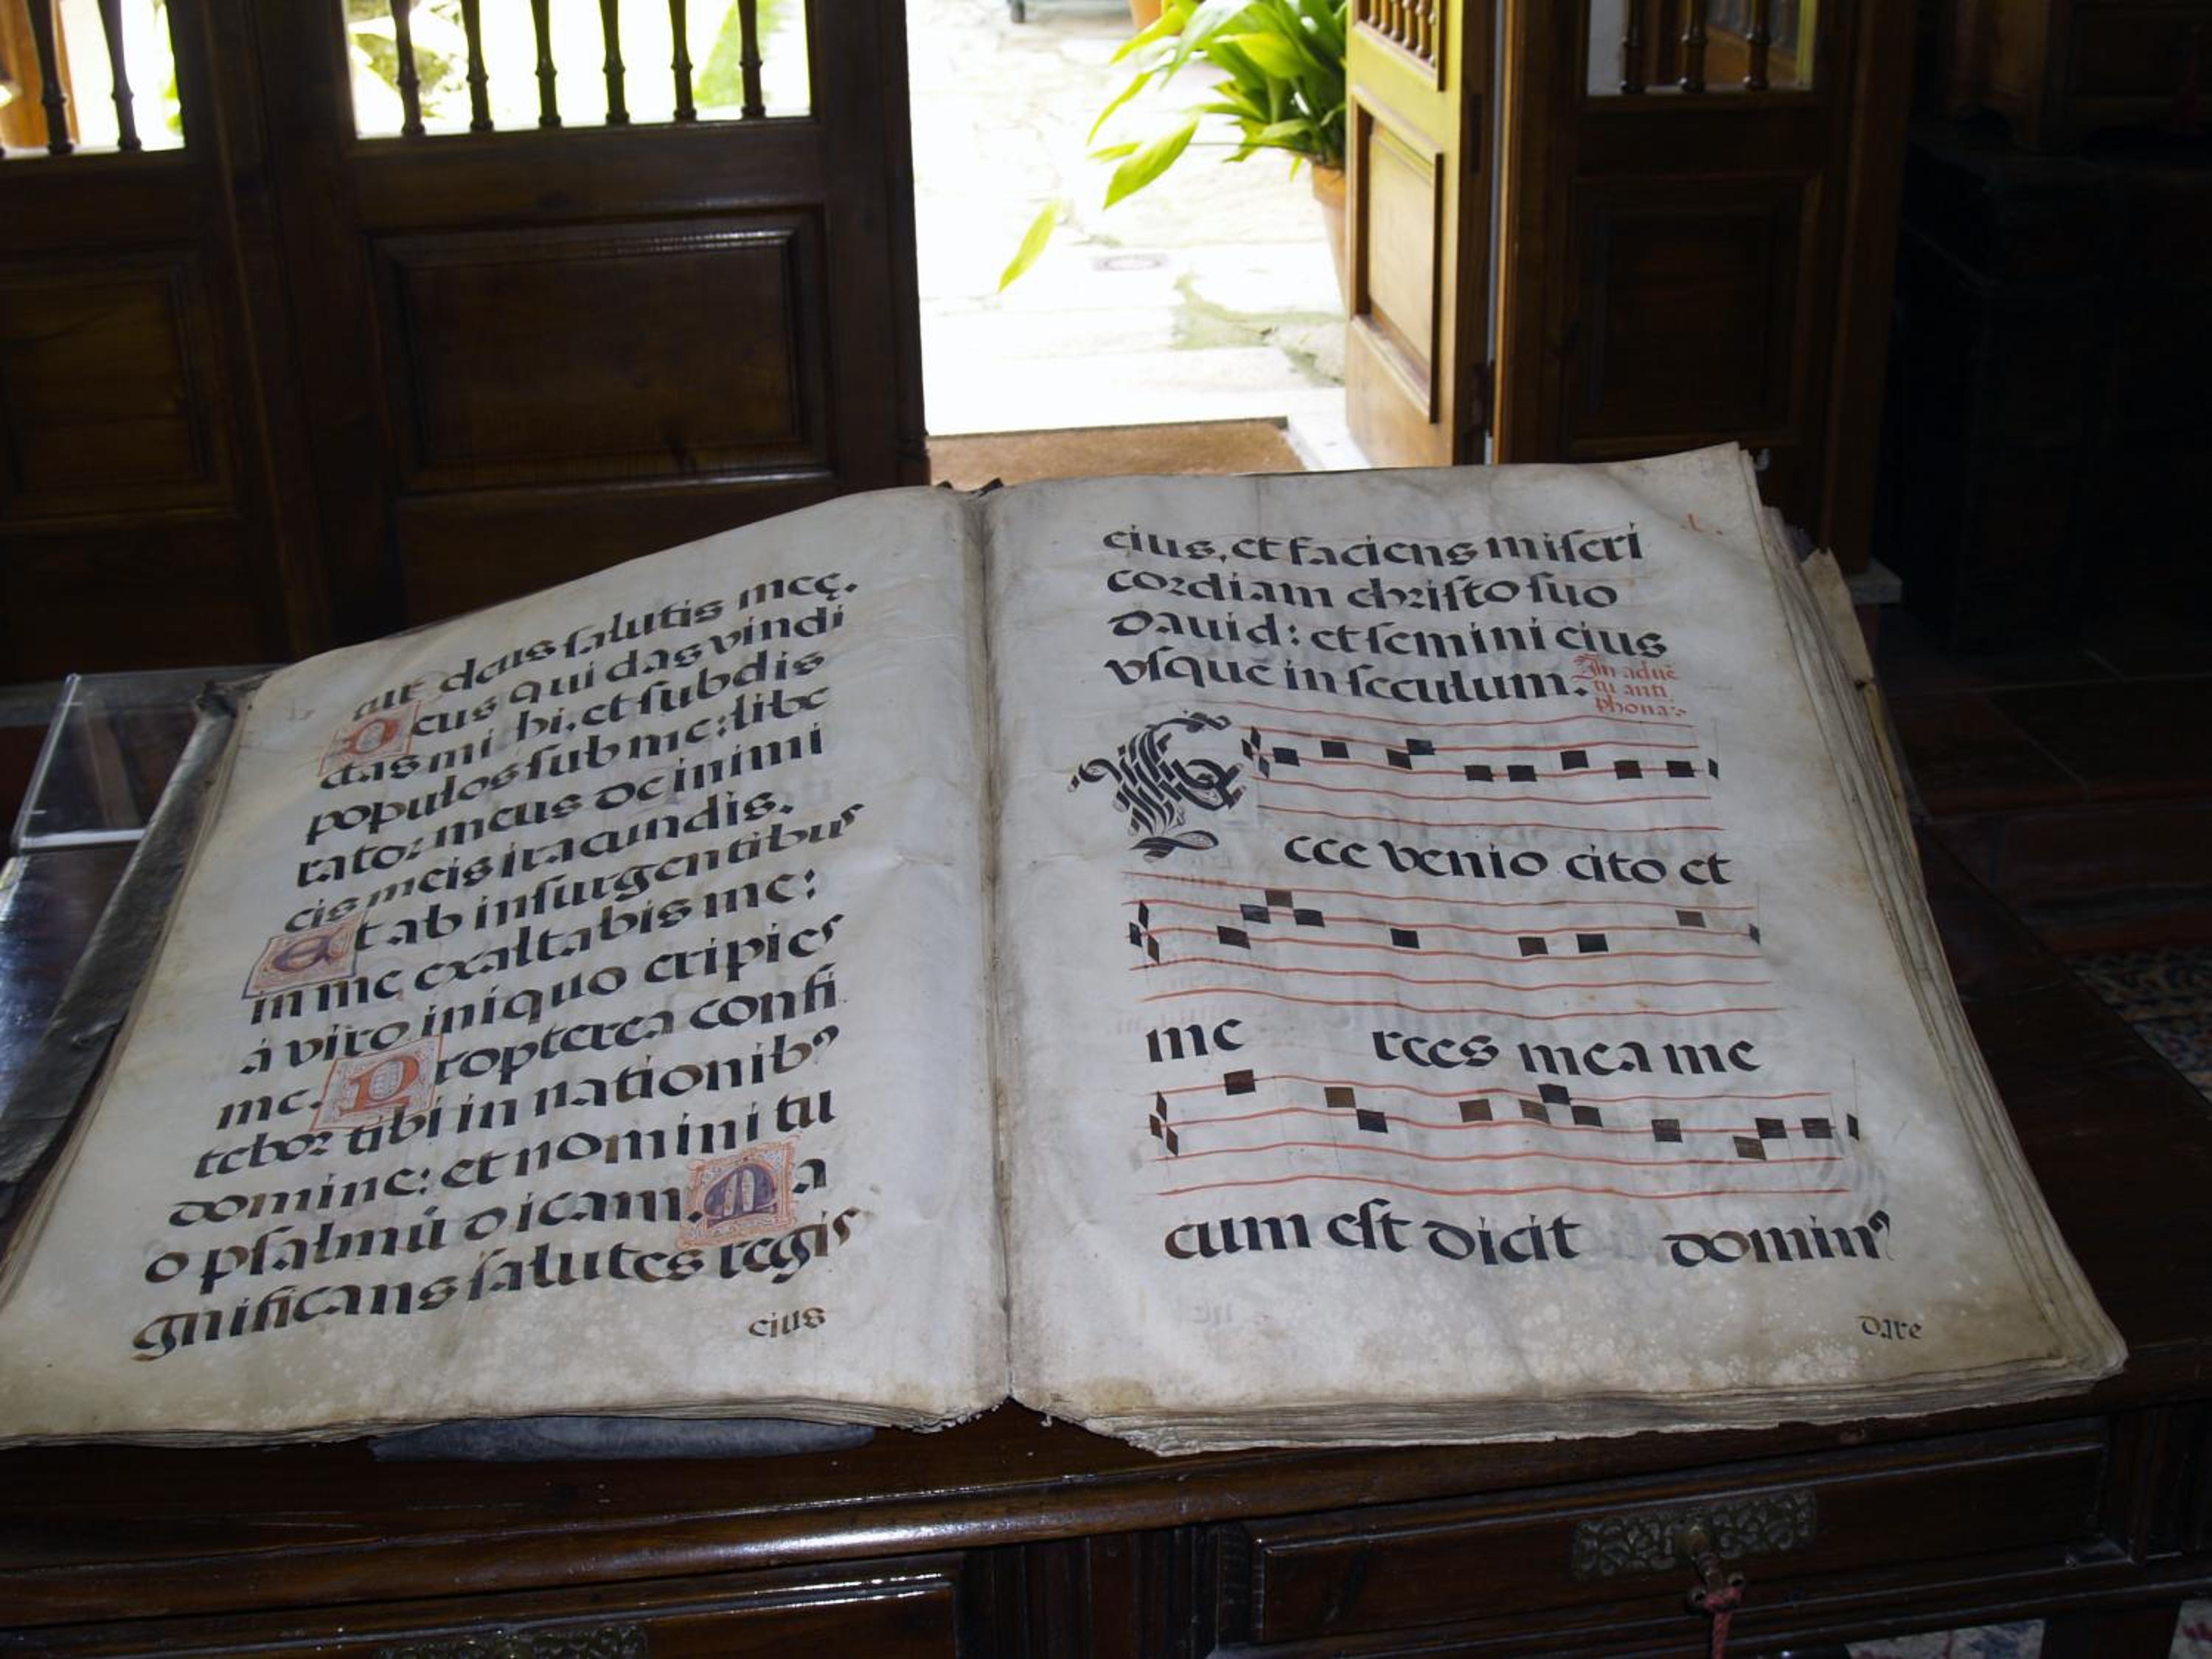 tur deus salutis meę.
Deus qui das vindi
ctas mi hi, et subdis
populos sub me: libe
rator meus de inimi
cis meis iracundis.
Et ab insurgentibus
in me exaltabis me:
á viro iniquo eripies
me. Propterea confi
tebor tibi in nationib⁹
domine: et nomini tu
o psalmū dicam. Ma
gnificans salutes regis
eius
eius, et faciens miseri
cordiam christo suo
Dauid: et semini eius
vsque in seculum.
In aduē
tu anti
phona
Ecce venio cito et
me rces mea me
cum est dicit domin⁹
dare